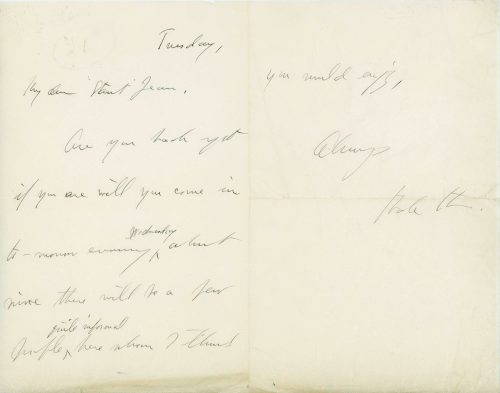 Tuesday,
My dear "Saint" Jean,
Are you back yet
if you are will you come in
to-morrow evening, Wednesday, about
nine there will be a few
people, quite informal, here whom I think
you would enjoy,
Always